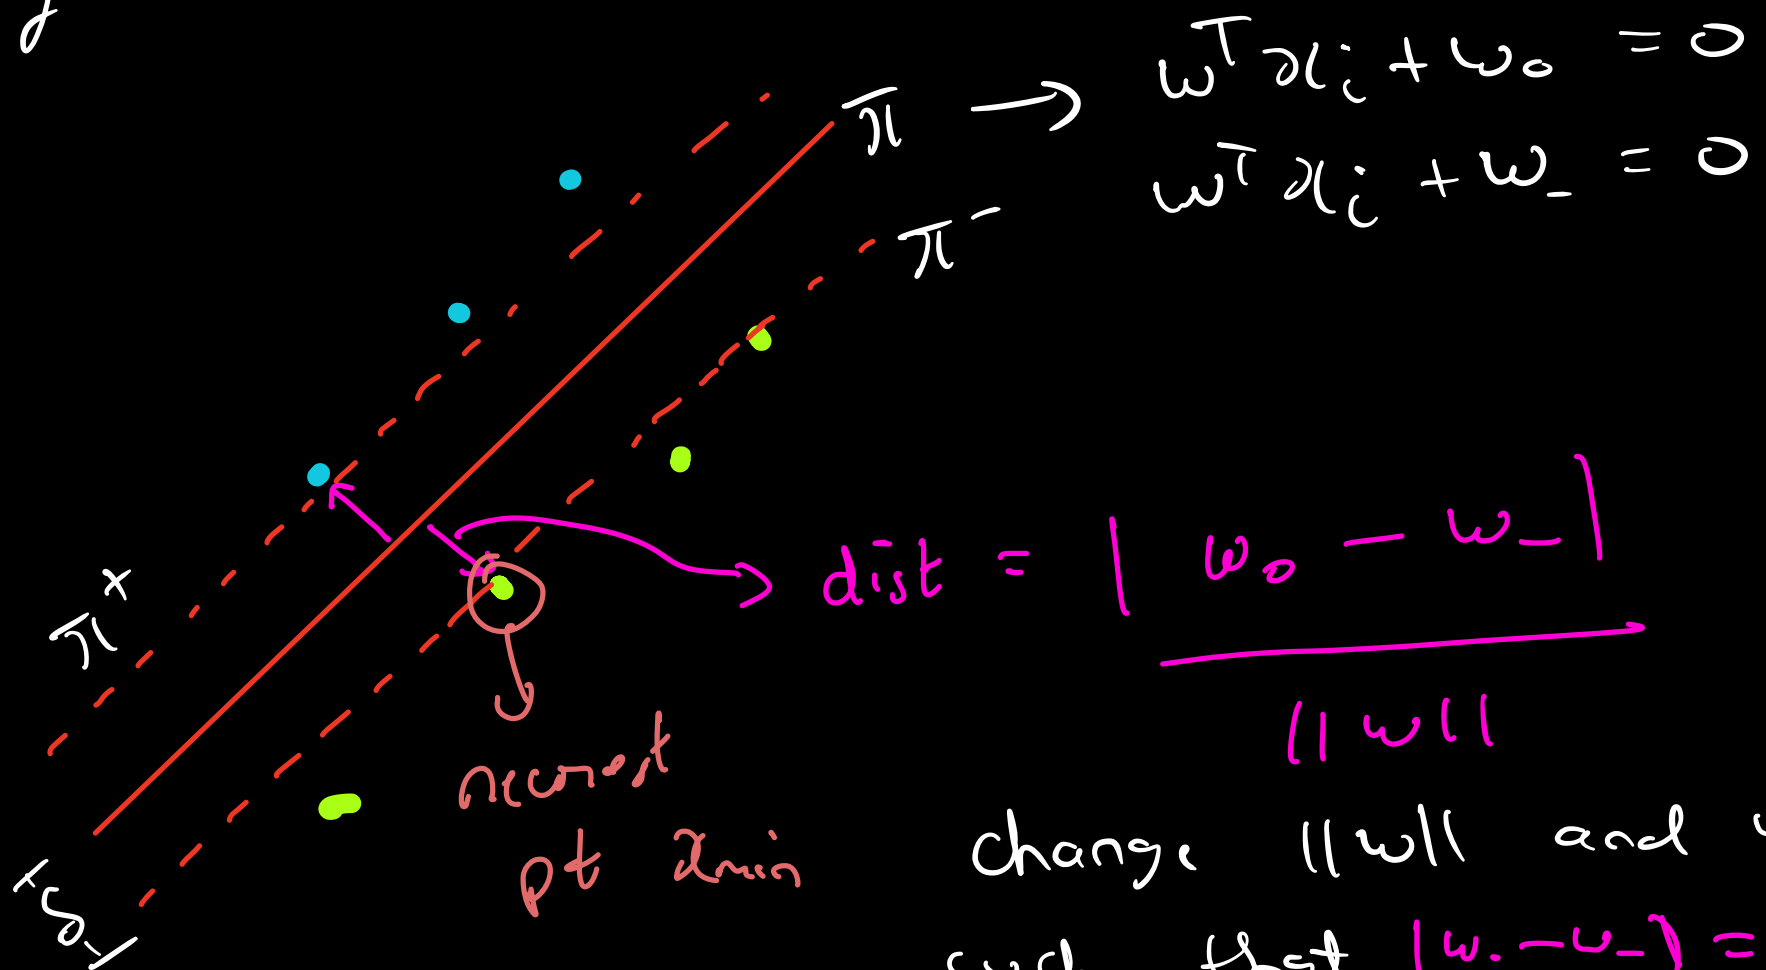 π → wᵀxᵢ + w₀ = 0
π⁻ wᵀxᵢ + w₋ = 0
dist = |w₀ - w₋|
||w||
π⁺
nearest
pt xmin
change ||w|| and
such that |w₀ - w₋| =